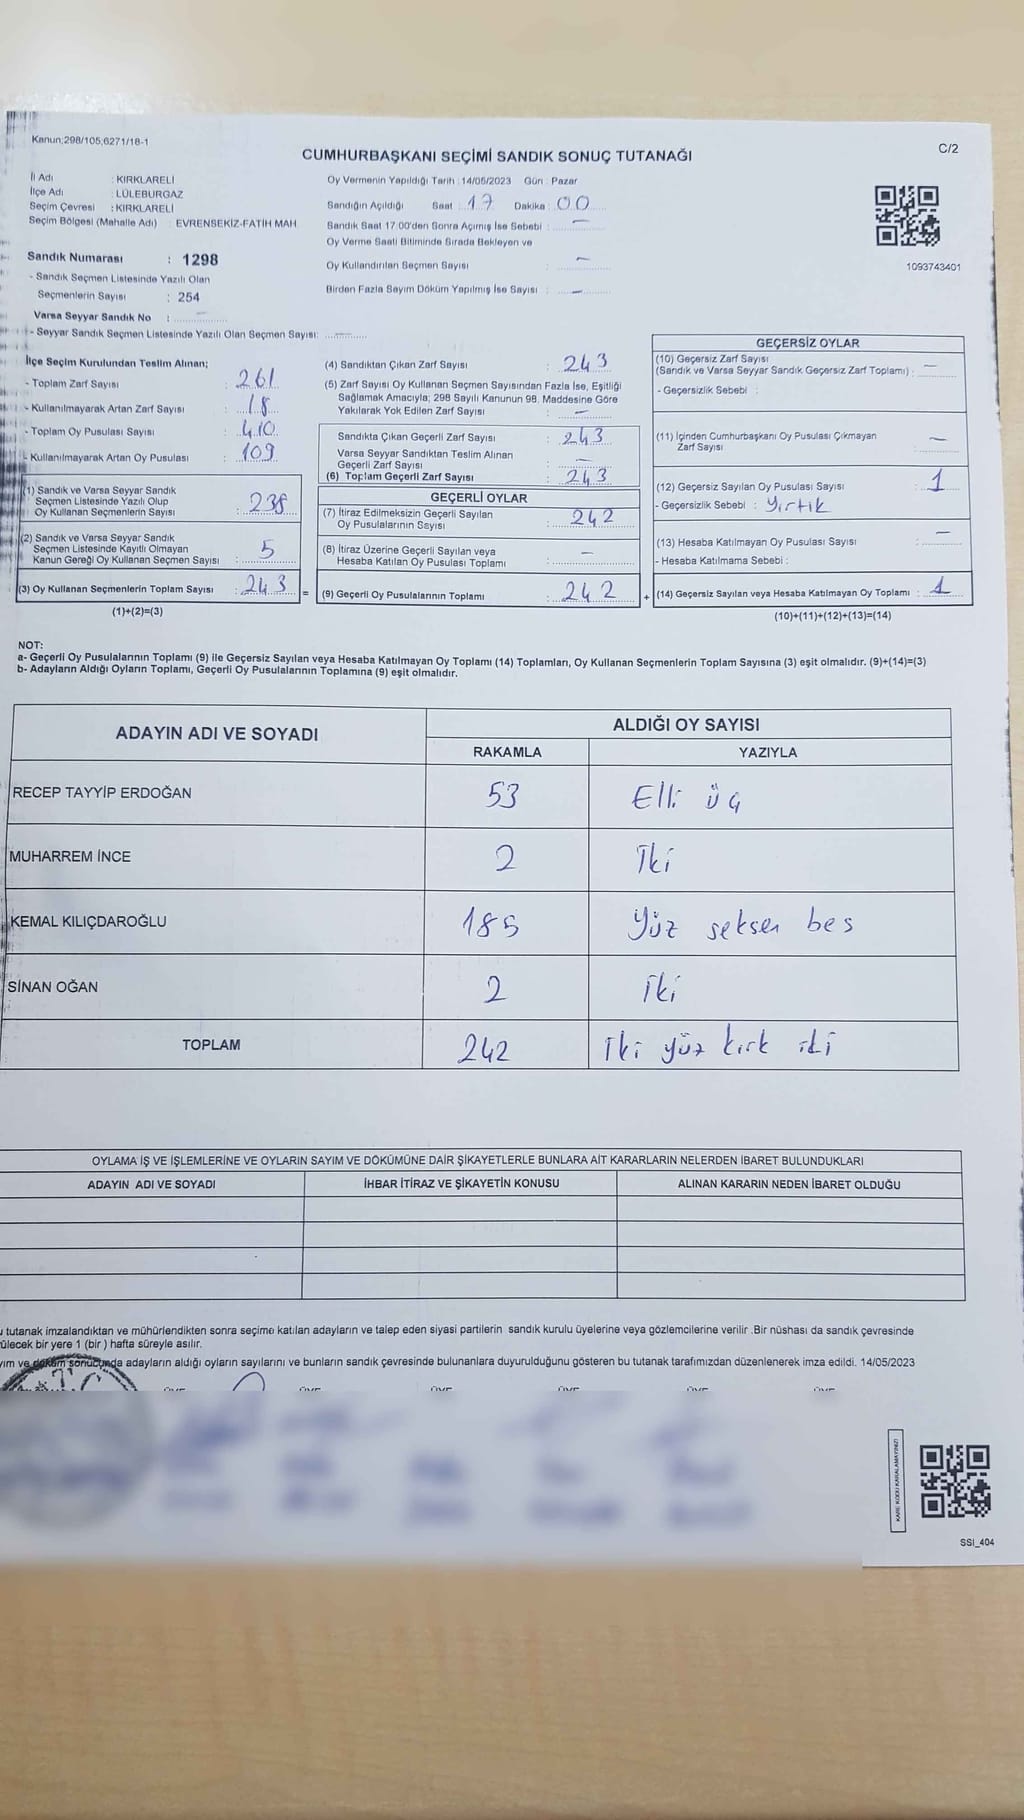 Kanun;298/105;6271/18-1
C/2
CUMHURBAŞKANI SEÇİMİ SANDIK SONUÇ TUTANAĞI
İl Adı : KIRKLARELİ
İlçe Adı : LÜLEBURGAZ
Seçim Çevresi : KIRKLARELİ
Seçim Bölgesi (Mahalle Adı) : EVRENSEKİZ-FATİH MAH
Sandık Numarası : 1298
- Sandık Seçmen Listesinde Yazılı Olan
Seçmenlerin Sayısı : 254
Varsa Seyyar Sandık No : —
- Seyyar Sandık Seçmen Listesinde Yazılı Olan Seçmen Sayısı: —
Oy Vermenin Yapıldığı Tarih : 14/05/2023 Gün : Pazar
Sandığın Açıldığı Saat : 17 Dakika : 00
Sandık Saat 17:00'den Sonra Açımış İse Sebebi : —
Oy Verme Saati Bitiminde Sırada Bekleyen ve
Oy Kullandırılan Seçmen Sayısı : —
Birden Fazla Sayım Döküm Yapılmış İse Sayısı : —
1093743401
İlçe Seçim Kurulundan Teslim Alınan;
- Toplam Zarf Sayısı : 261
- Kullanılmayarak Artan Zarf Sayısı : 18
- Toplam Oy Pusulası Sayısı : 410
- Kullanılmayarak Artan Oy Pusulası : 109
(1) Sandık ve Varsa Seyyar Sandık
Seçmen Listesinde Yazılı Olup
Oy Kullanan Seçmenlerin Sayısı : 238
(2) Sandık ve Varsa Seyyar Sandık
Seçmen Listesinde Kayıtlı Olmayan
Kanun Gereği Oy Kullanan Seçmen Sayısı : 5
(3) Oy Kullanan Seçmenlerin Toplam Sayısı : 243 =
(1)+(2)=(3)
(4) Sandıktan Çıkan Zarf Sayısı : 243
(5) Zarf Sayısı Oy Kullanan Seçmen Sayısından Fazla İse, Eşitliği
Sağlamak Amacıyla; 298 Sayılı Kanunun 98. Maddesine Göre
Yakılarak Yok Edilen Zarf Sayısı : —
Sandıkta Çıkan Geçerli Zarf Sayısı : 243
Varsa Seyyar Sandıktan Teslim Alınan
Geçerli Zarf Sayısı : —
(6) Toplam Geçerli Zarf Sayısı : 243
GEÇERLİ OYLAR
(7) İtiraz Edilmeksizin Geçerli Sayılan
Oy Pusulalarının Sayısı : 242
(8) İtiraz Üzerine Geçerli Sayılan veya
Hesaba Katılan Oy Pusulası Toplamı : —
(9) Geçerli Oy Pusulalarının Toplamı : 242 +
GEÇERSİZ OYLAR
(10) Geçersiz Zarf Sayısı
(Sandık ve Varsa Seyyar Sandık Geçersiz Zarf Toplamı) : —
- Geçersizlik Sebebi :
(11) İçinden Cumhurbaşkanı Oy Pusulası Çıkmayan
Zarf Sayısı : —
(12) Geçersiz Sayılan Oy Pusulası Sayısı : 1
- Geçersizlik Sebebi : Yırtık
(13) Hesaba Katılmayan Oy Pusulası Sayısı : —
- Hesaba Katılmama Sebebi :
(14) Geçersiz Sayılan veya Hesaba Katılmayan Oy Toplamı : 1
(10)+(11)+(12)+(13)=(14)
NOT:
a- Geçerli Oy Pusulalarının Toplamı (9) ile Geçersiz Sayılan veya Hesaba Katılmayan Oy Toplamı (14) Toplamları, Oy Kullanan Seçmenlerin Toplam Sayısına (3) eşit olmalıdır. (9)+(14)=(3)
b- Adayların Aldığı Oyların Toplamı, Geçerli Oy Pusulalarının Toplamına (9) eşit olmalıdır.
ADAYIN ADI VE SOYADI
ALDIĞI OY SAYISI
RAKAMLA YAZIYLA
RECEP TAYYİP ERDOĞAN 53 Elli üç
MUHARREM İNCE 2 İki
KEMAL KILIÇDAROĞLU 185 Yüz seksen bes
SİNAN OĞAN 2 İki
TOPLAM 242 İki yüz kırk iki
OYLAMA İŞ VE İŞLEMLERİNE VE OYLARIN SAYIM VE DÖKÜMÜNE DAİR ŞİKAYETLERLE BUNLARA AİT KARARLARIN NELERDEN İBARET BULUNDUKLARI
ADAYIN ADI VE SOYADI İHBAR İTİRAZ VE ŞİKAYETİN KONUSU ALINAN KARARIN NEDEN İBARET OLDUĞU
tutanak imzalandıktan ve mühürlendikten sonra seçime katılan adayların ve talep eden siyasi partilerin sandık kurulu üyelerine veya gözlemcilerine verilir .Bir nüshası da sandık çevresinde
ülecek bir yere 1 (bir ) hafta süreyle asılır.
yım ve döküm sonucunda adayların aldığı oyların sayılarını ve bunların sandık çevresinde bulunanlara duyurulduğunu gösteren bu tutanak tarafımızdan düzenlenerek imza edildi. 14/05/2023
KARE KODU KARALAMAYINIZ!
SSI_404